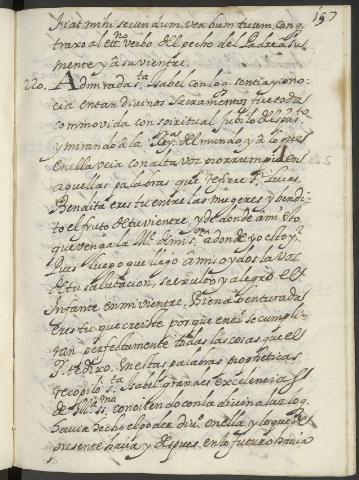 157
Fiat mihi secundum verbum tuum, con q̃
traxo al etno. verbo del pecho del Padre a su
mente y a su vientre.
220. Admirada sta. Isabel con lo q. sentia y cono-
cia en tan divinos Sacramentos fue toda
commovida con spiritual jubilo del sp.u sto.
y mirando a la Reya. del mundo y a lo que
en ella veia con alta voz prorrumpia en
aquellas palabras que refiere S. Lucas.
Bendita eres tu entre las mugeres y bendi-
to el fruto de tu vientre, y de donde a mi esto
que venga la Me. de mi sr. a donde yo estoy?
Pues luego que llego a mis oydos la voz
de tu salutacion, se exulto y alegro el
Infante en mi vientre. Bienabenturada
eres tu que creiste porque en ti se cumpli-
ran perfectamente todas las cosas que el
Sr. te dixo. En estas palabras propheticas
recopilo sta. Isabel grandes excelencias
de Ma. ssma. conociendo con la divina luz lo q.
havia hecho el poder divo. en ella y lo que de
presente hacia y despues en lo futuro havia